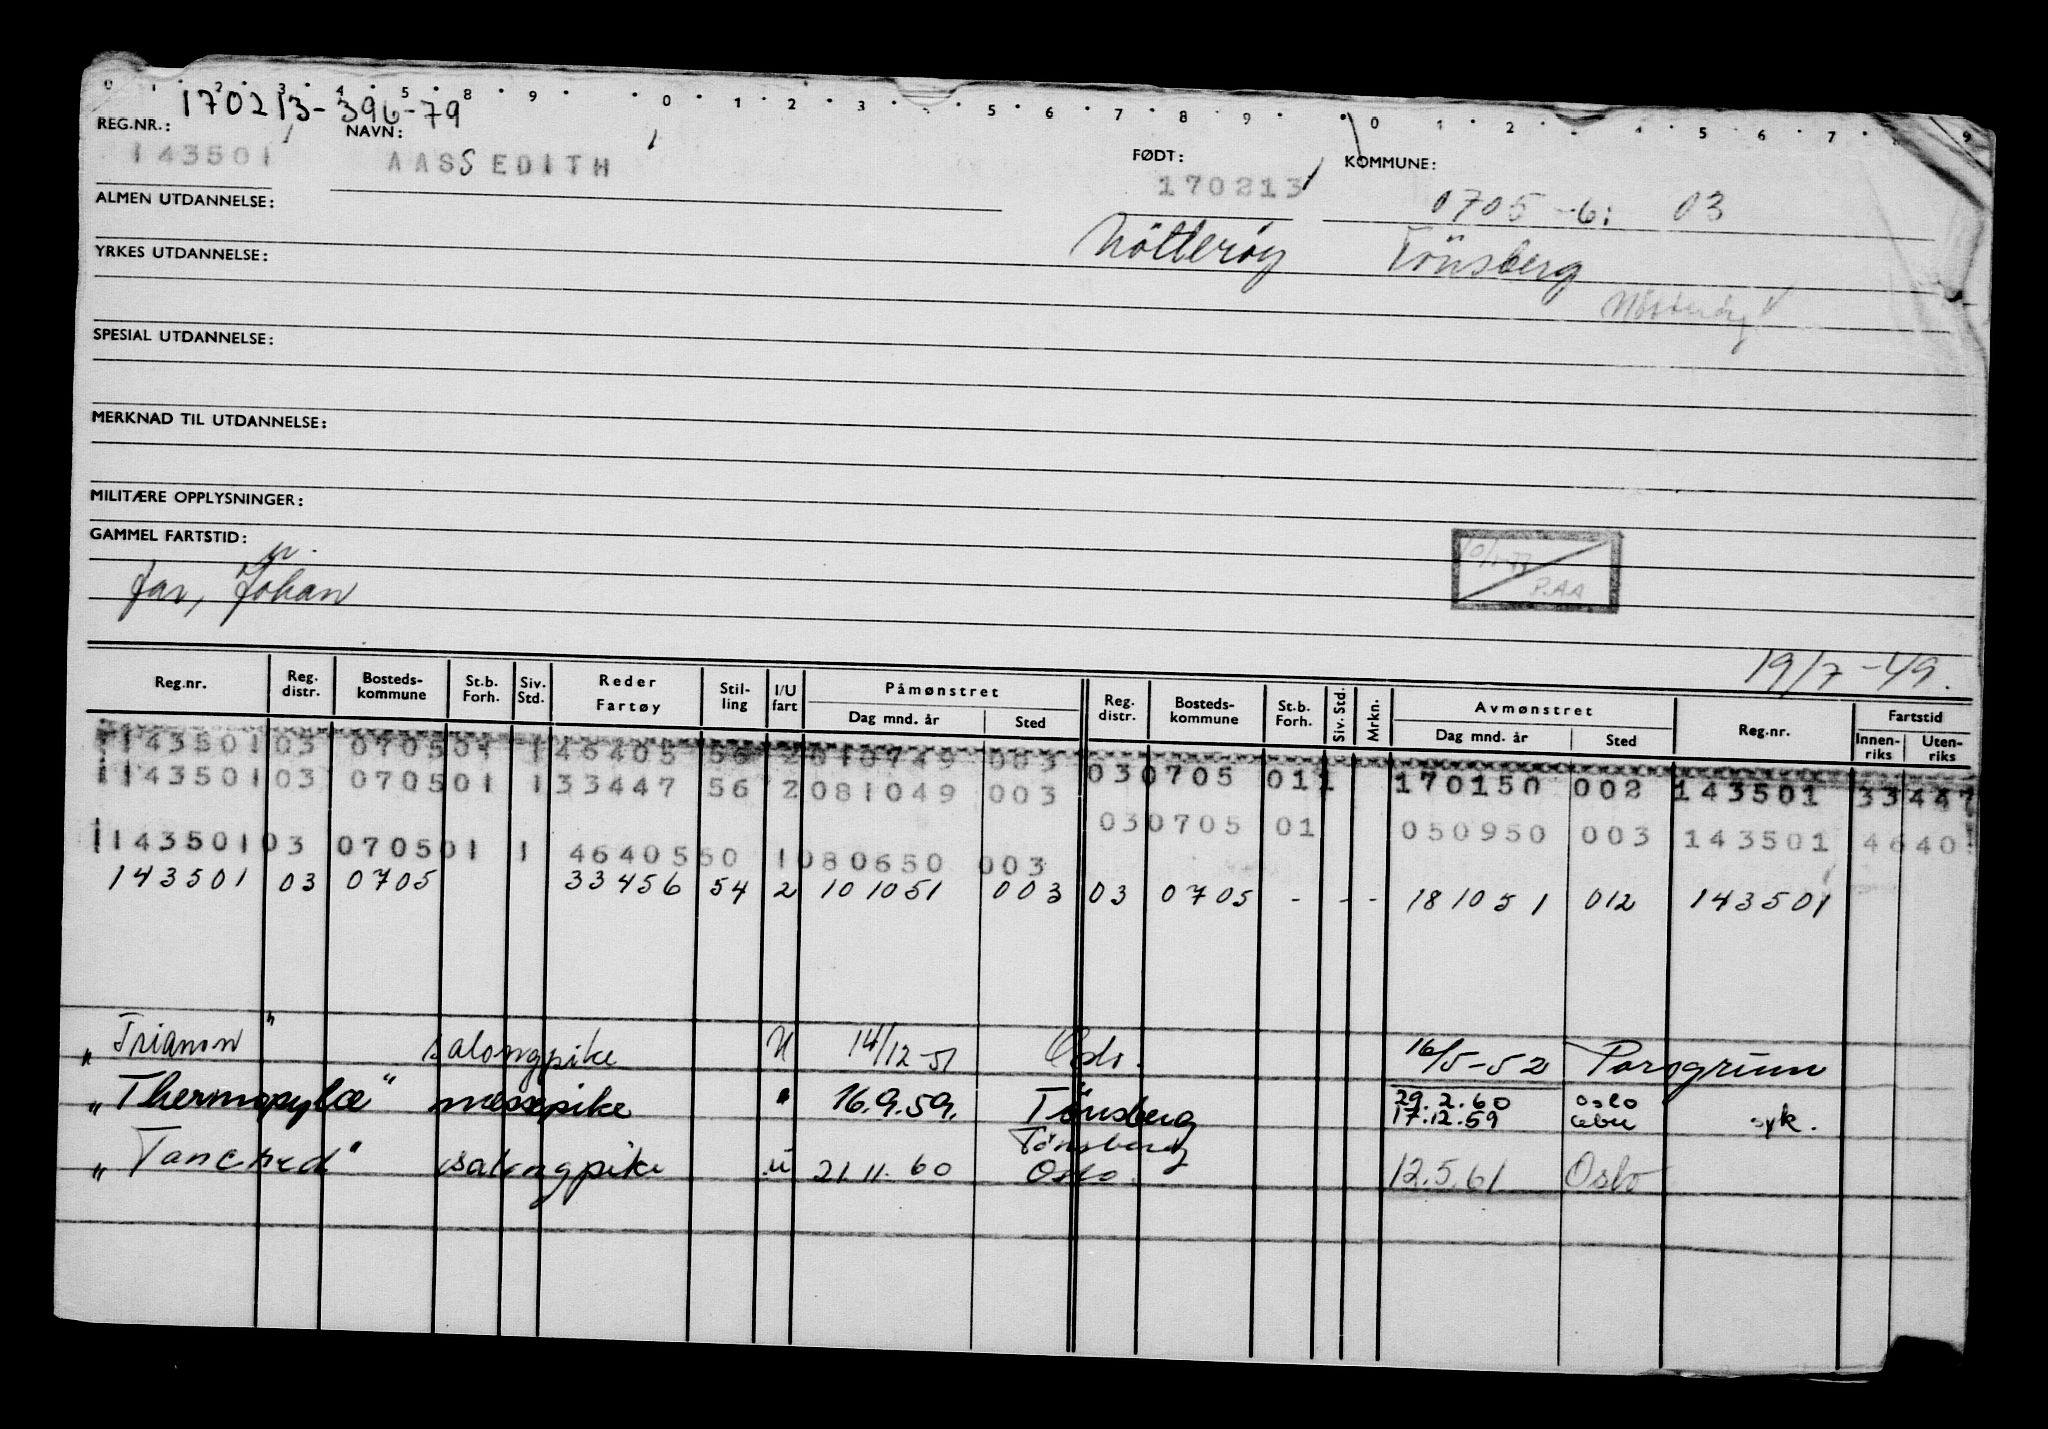 0 2 3 4 5 8 9 0 1 2 3 5 6 7 8 9 0 1 2 4 5 6 7 9
170213-396-79
REG.NR.: NAVN: FØDT: KOMMUNE:
143501 AASS EDITH 170213 0705-6: 03
ALMEN UTDANNELSE:
Nötterøy Tönsberg
YRKES UTDANNELSE:
Nötterøy
SPESIAL UTDANNELSE:
MERKNAD TIL UTDANNELSE:
MILITÆRE OPPLYSNINGER:
GAMMEL FARTSTID:
P.AA
far, Johan
19/7-49.
Reg.nr. Reg. distr. Bosteds- kommune St.b. Forh. Siv. Std. Reder Fartøy Stil- ling I/U fart Påmønstret Dag mnd. år Sted Reg. distr. Bosteds- kommune St.b. Forh. Siv. Std. Mrkn. Avmønstret Dag mnd. år Sted Reg.nr. Fartstid Innen- riks Uten- riks
143501 03 0705 01 1 46405 56 2 010749 003
143501 03 0705 01 1 33447 56 2 081049 003 03 0705 01 1 170150 002 143501 33447
03 0705 01 050950 003 143501 4640
143501 03 0705 01 1 46405 50 1 080650 003
143501 03 0705 33456 54 2 101051 003 03 0705 - - - 181051 012 143501
„Trianon" salongpike U 14/12-51 Oslo. 16/5-52 Porsgrunn
29.2.60 Oslo
„Thermopylæ" messepike " 16.9.59. Tönsberg 17.12.59 Cebu syk.
Tønsberg
„Tancred" salongpike u 21.11.60 Oslo. 12.5.61 Oslo